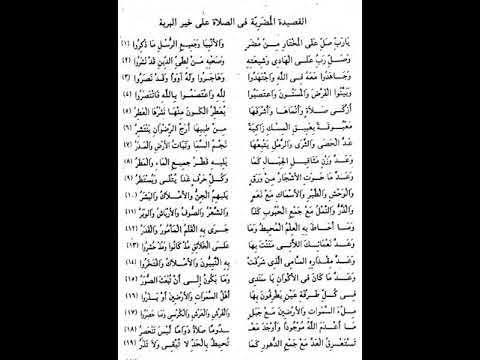 القصيدة المُضَرِيَّة فى الصلاة على خير البرية
يَارَبِّ صَلِّ عَلَى المُخْتَارِ مِنْ مُضَرٍ وَالأَنْبِيَا وَجَمِيعِ الرُّسْلِ مَا ذُكِرُوا (١)
وَصَلِّ رَبِّ عَلَى الهَادِى وَشِيعَتِهِ وَصَحْبِهِ مَنْ لِطَىِّ الدِّينِ قَدْ نَشَرُوا (٢)
وَجَاهَدُوا مَعَهُ فِى اللَّهِ وَاجْتَهَدُوا وَهَاجَرُوا وَلَهُ آوَوْا وَقَدْ نَصَرُوا (٣)
وَبَيَّنُوا الفَرْضَ وَالمَسْنُونَ وَاعْتَصَبُوا لِلَّهِ وَاعْتَصَمُوا بِاللَّهِ فَانْتَصَرُوا (٤)
أَزْكَى صَلَاةٍ وَأَنْمَاهَا وَأَشْرَفَهَا يُعَطِّرُ الكَوْنَ مِنْهَا نَشْرُهَا العَطِرُ (٥)
مَعْبُوقَةً بِعَبِيقِ المِسْكِ زَاكِيَةً مِنْ طِيبِهَا أَرَجُ الرِّضْوَانِ يَنْتَشِرُ (٦)
عَدَّ الحَصَى وَالثَّرَى وَالرَّمْلِ يَتْبَعُهَا نَجْمُ السَّمَا وَنَبَاتُ الأَرْضِ وَالمَدَرُ (٧)
وَعَدَّ وَزْنِ مَثَاقِيلِ الجِبَالِ كَمَا يَلِيهِ قَطْرُ جَمِيعِ المَاءِ وَالمَطَرُ (٨)
وَعَدَّ مَا حَوَتِ الأَشْجَارُ مِنْ وَرَقٍ وَكُلِّ حَرْفٍ غَدَا يُتْلَى وَيُسْتَطَرُ (٩)
وَالوَحْشِ وَالطَّيْرِ وَالأَسْمَاكِ مَعْ نَعَمٍ يَلِيهِمُ الجِنُّ وَالأَمْلَاكُ وَالبَشَرُ (١٠)
وَالذَّرُّ وَالنَّمْلُ مَعْ جَمْعِ الحُبُوبِ كَذَا وَالشَّعْرُ وَالصُّوفُ وَالأَرْيَاشُ وَالوَبَرُ (١١)
وَمَا أَحَاطَ بِهِ العِلْمُ المُحِيطُ وَمَا جَرَى بِهِ القَلَمُ المَأْمُورُ وَالقَدَرُ (١٢)
وَعَدَّ نَعْمَائِكَ اللَّاتِى مَنَنْتَ بِهَا عَلَى الخَلَائِقِ مُذْ كَانُوا وَمُذْ حُشِرُوا (١٣)
وَعَدَّ مِقْدَارِهِ السَّامِى الَّذِى شَرُفَتْ بِهِ النَّبِيُّونَ وَالأَمْلَاكُ وَافْتَخَرُوا (١٤)
وَعَدَّ مَا كَانَ فِى الأَكْوَانِ يَا سَنَدِى وَمَا يَكُونُ إِلَى أَنْ تُبْعَثَ الصُّوَرُ (١٥)
فِى كُلِّ طَرْفَةِ عَيْنٍ يَطْرِفُونَ بِهَا أَهْلُ السَّمٰوَاتِ وَالأَرْضِينَ أَوْ يَذَرُوا (١٦)
مِلْءَ السَّمٰوَاتِ وَالأَرْضِينَ مَعْ جَبَلٍ وَالفَرْشِ وَالعَرْشِ وَالكُرْسِى وَمَا حَصَرُوا (١٧)
مَا أَعْدَمَ اللَّهُ مَوْجُودًا وَأَوْجَدَ مَعْدُومًا صَلَاةً دَوَامًا لَيْسَ تَنْحَصِرُ (١٨)
تَسْتَغْرِقُ العَدَّ مَعْ جَمْعِ الدُّهُورِ كَمَا تُحِيطُ بِالحَدِّ لَا تُبْقِى وَلَا تَذَرُ (١٩)